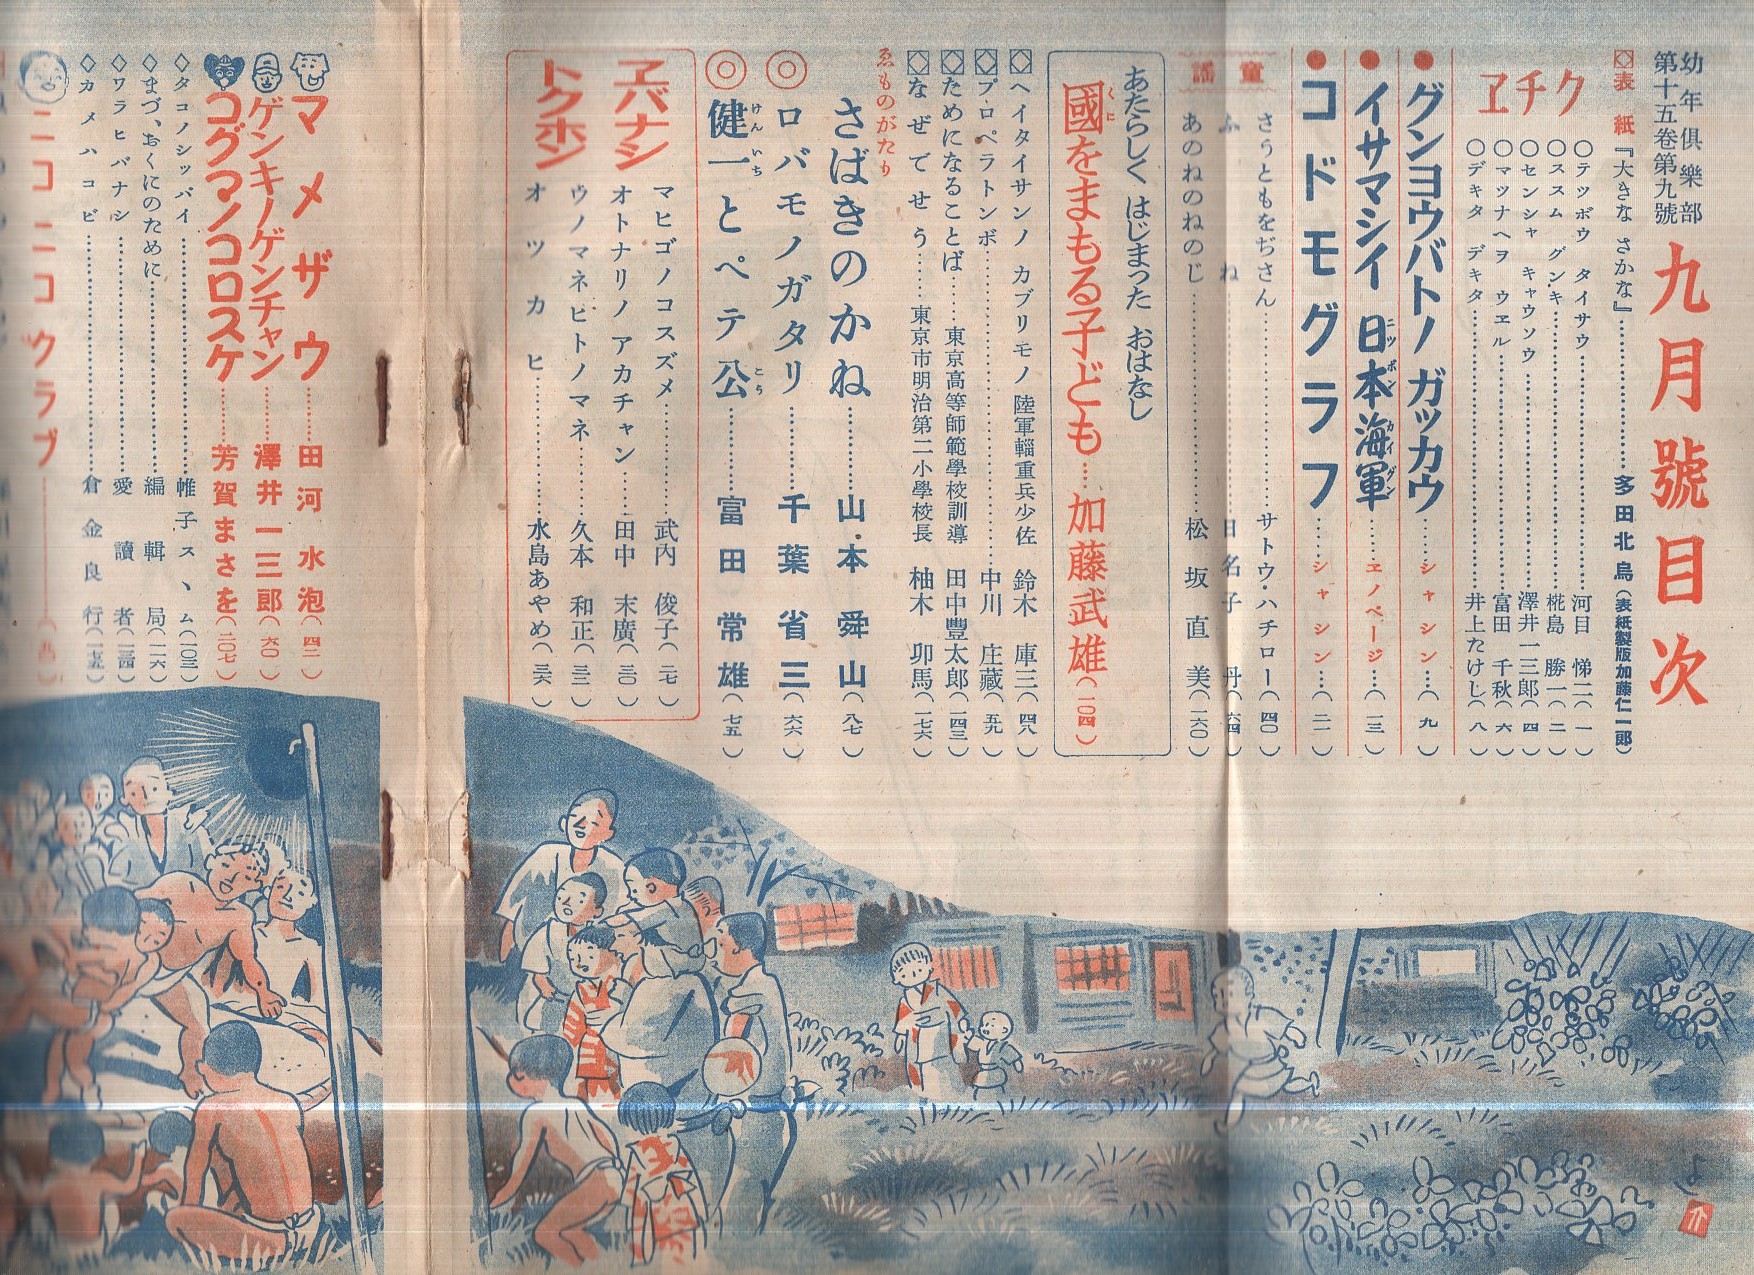 幼年倶樂部
第十五卷第九號
九月號目次
◇表紙『大きな さかな』……多田北烏(表紙製版加藤仁一郎)
クチヱ
○テツボウ タイサウ……河目 悌二(一)
○ススム グンキ……椛島 勝一(二)
○センシャ キャウソウ……澤井一三郎(四)
○マツナヘヲ ウヱル……富田 千秋(六)
○デキタ デキタ……井上たけし(八)
●グンヨウバトノ ガッカウ……シャシン…(九)
●イサマシイ 日本海軍……ヱノページ…(一三)
ニッポン カイグン
●コドモグラフ……シャシン…(二一)
童謠
さうともをぢさん……サトウ・ハチロー(四〇)
ふね……日名子 丹(六四)
あのねのねのじ……松坂直美(一六〇)
あたらしく はじまった おはなし
國をまもる子ども…加藤武雄(一〇四)
くに
◇ヘイタイサンノ カブリモノ 陸軍輜重兵少佐 鈴木 庫三(四八)
◇プロペラトンボ……中川 庄藏(五九)
◇ためになることば……東京高等師範學校訓導 田中豐太郎(一四三)
◇なぜでせう……東京市明治第二小學校長 柚木 卯馬(一七六)
ゑものがたり
さばきのかね……山本舜山(八七)
◎ロバモノガタリ……千葉省三(六六)
◎健一とペテ公……富田常雄(七五)
けんいち こう
ヱバナシ
トクホン
マヒゴノコスズメ……武内 俊子(二七)
オトナリノ アカチャン……田中 末廣(三〇)
ウノマネヒトノマネ……久本 和正(三三)
オツカヒ……水島あやめ(三六)
マメザウ……田河水泡(四二)
ゲンキノゲンチャン……澤井一三郎(六〇)
コグマノコロスケ……芳賀まさを(二〇七)
◇タコノシッパイ……帷子スヽム(一〇三)
◇まづ、おくにのために……編輯局(一一六)
◇ワラヒバナシ……愛讀者(一三四)
◇カメハコビ……倉金良行(一七五)
ニコニコクラブ